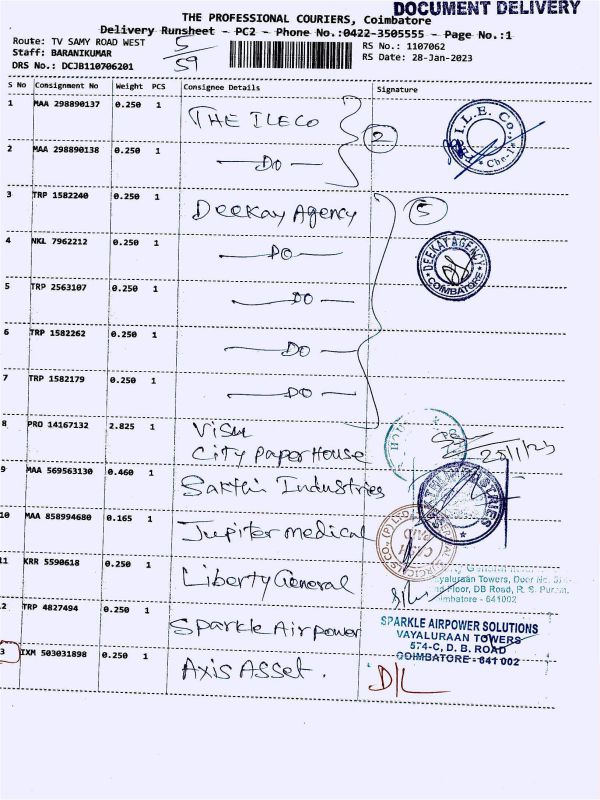 DOCUMENT DELIVERY
THE PROFESSIONAL COURIERS, Coimbatore
Delivery Runsheet - PC2 - Phone No.:0422-3505555 - Page No.:1
Route: TV SAMY ROAD WEST
Staff: BARANIKUMAR
DRS No.: DCJB110706201
5/59
RS No.: 1107062
RS Date: 28-Jan-2023
S No Consignment No Weight PCS Consignee Details Signature
1 MAA 298890137 0.250 1 THE ILECO 2
I.L.E. Co.,
2 MAA 298890138 0.250 1 DO
3 TRP 1582240 0.250 1 Deekay Agency 5
4 NKL 7962212 0.250 1 DO
DEEKAY AGENCY COIMBATORE
5 TRP 2563107 0.250 1 DO
6 TRP 1582262 0.250 1 DO
7 TRP 1582179 0.250 1 DO
8 PRO 14167132 2.825 1 Visu
City Paper House
9 MAA 569563130 0.460 1 Sakthi Industries
10 MAA 858994680 0.165 1 Jupiter medical
CASH PAID
11 KRR 5590618 0.250 1 Liberty General
General
Vayaluraan Towers, Door No.
Floor, DB Road, R. S. Puram,
Coimbatore - 641002
12 TRP 4827494 0.250 1 Sparkle Airpower
SPARKLE AIRPOWER SOLUTIONS
VAYALURAAN TOWERS
574-C, D. B. ROAD
COIMBATORE - 641 002
3 IXM 503031898 0.250 1 Axis Asset. D/L